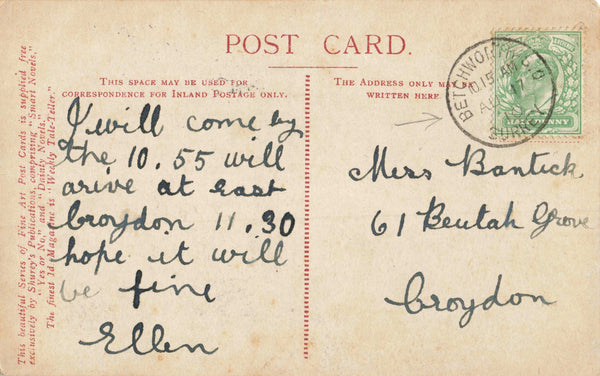 POST CARD.
THIS SPACE MAY BE USED FOR
CORRESPONDENCE FOR INLAND POSTAGE ONLY.
THE ADDRESS ONLY MAY
WRITTEN HERE
This beautiful Series of Fine Art Post Cards is supplied free
exclusively by Shurey's Publications, comprising "Smart Novels,"
"Yes or No," and "Dainty Novels."
The finest 1d. Magazine is "Weekly Tale-Teller."
I will come by
the 10.55 will
arive at east
Croydon 11.30
hope it will
be fine
Ellen
Mers Bantick
61 Beulah Grove
Croydon
BETCHWORTH S.O
SURREY
HALFPENNY